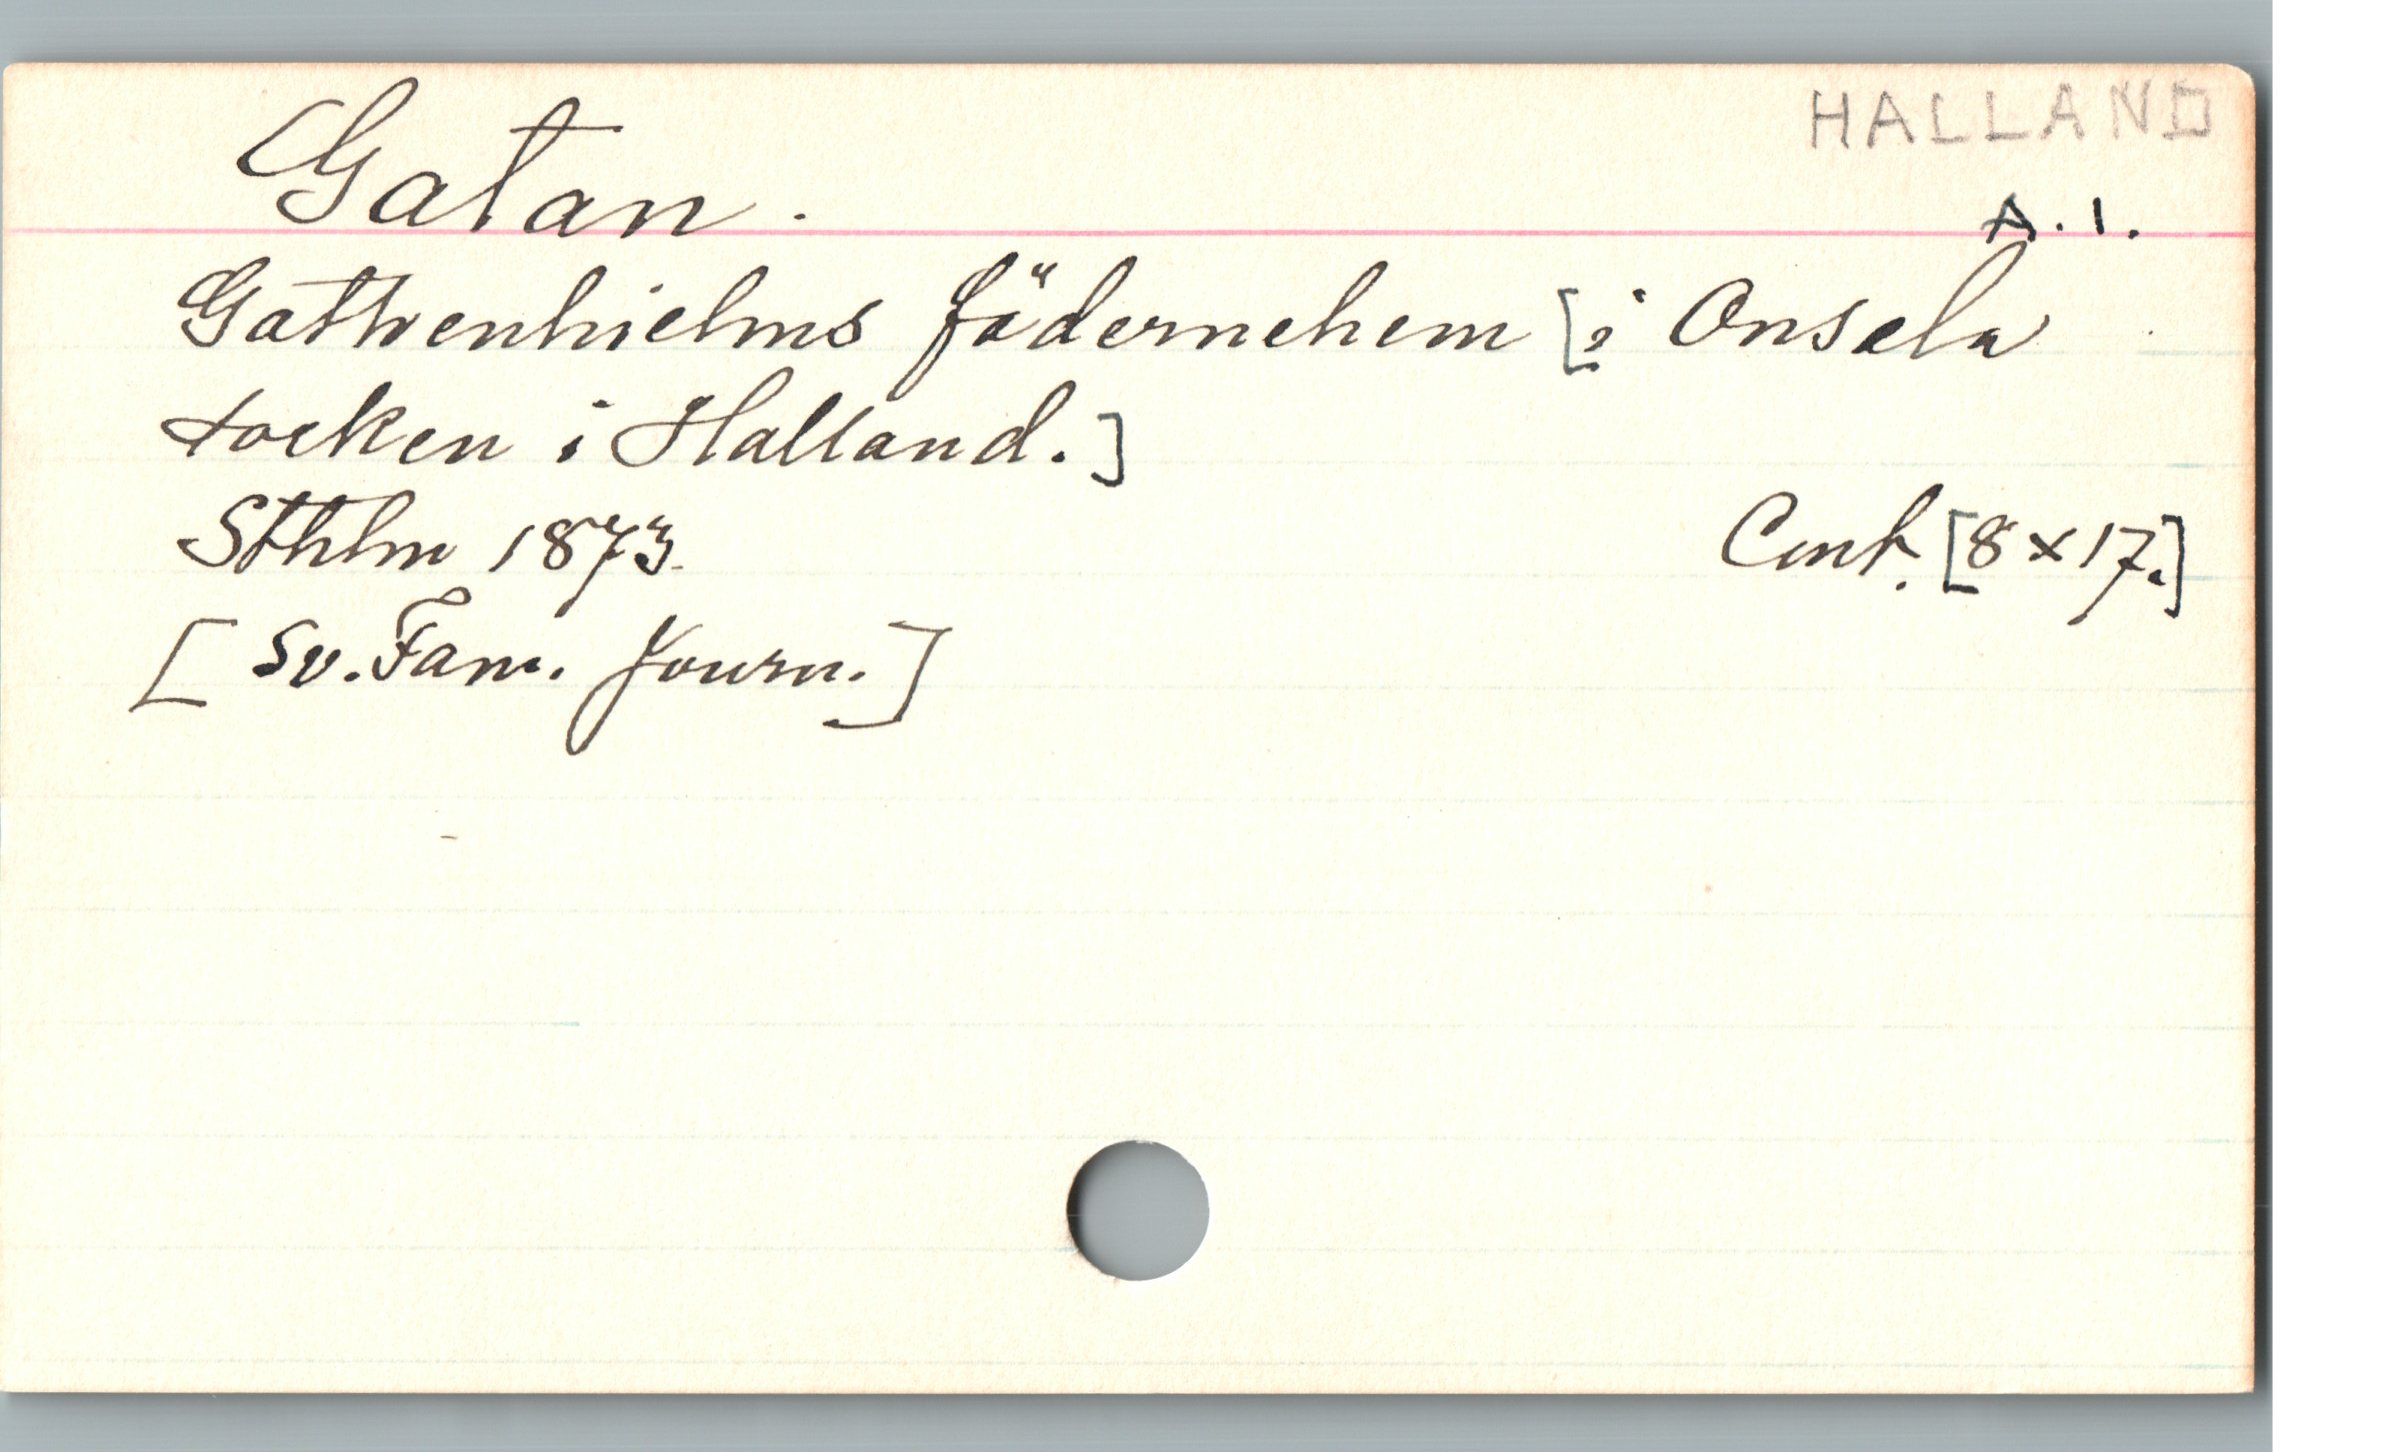 HALLAND
Gatan.
A.1.
Gathenhielms födernehem [i Onsala
socken i Halland.]
Sthlm 1873. Cent. [8x17.]
[Sv. Fam. Journ.]